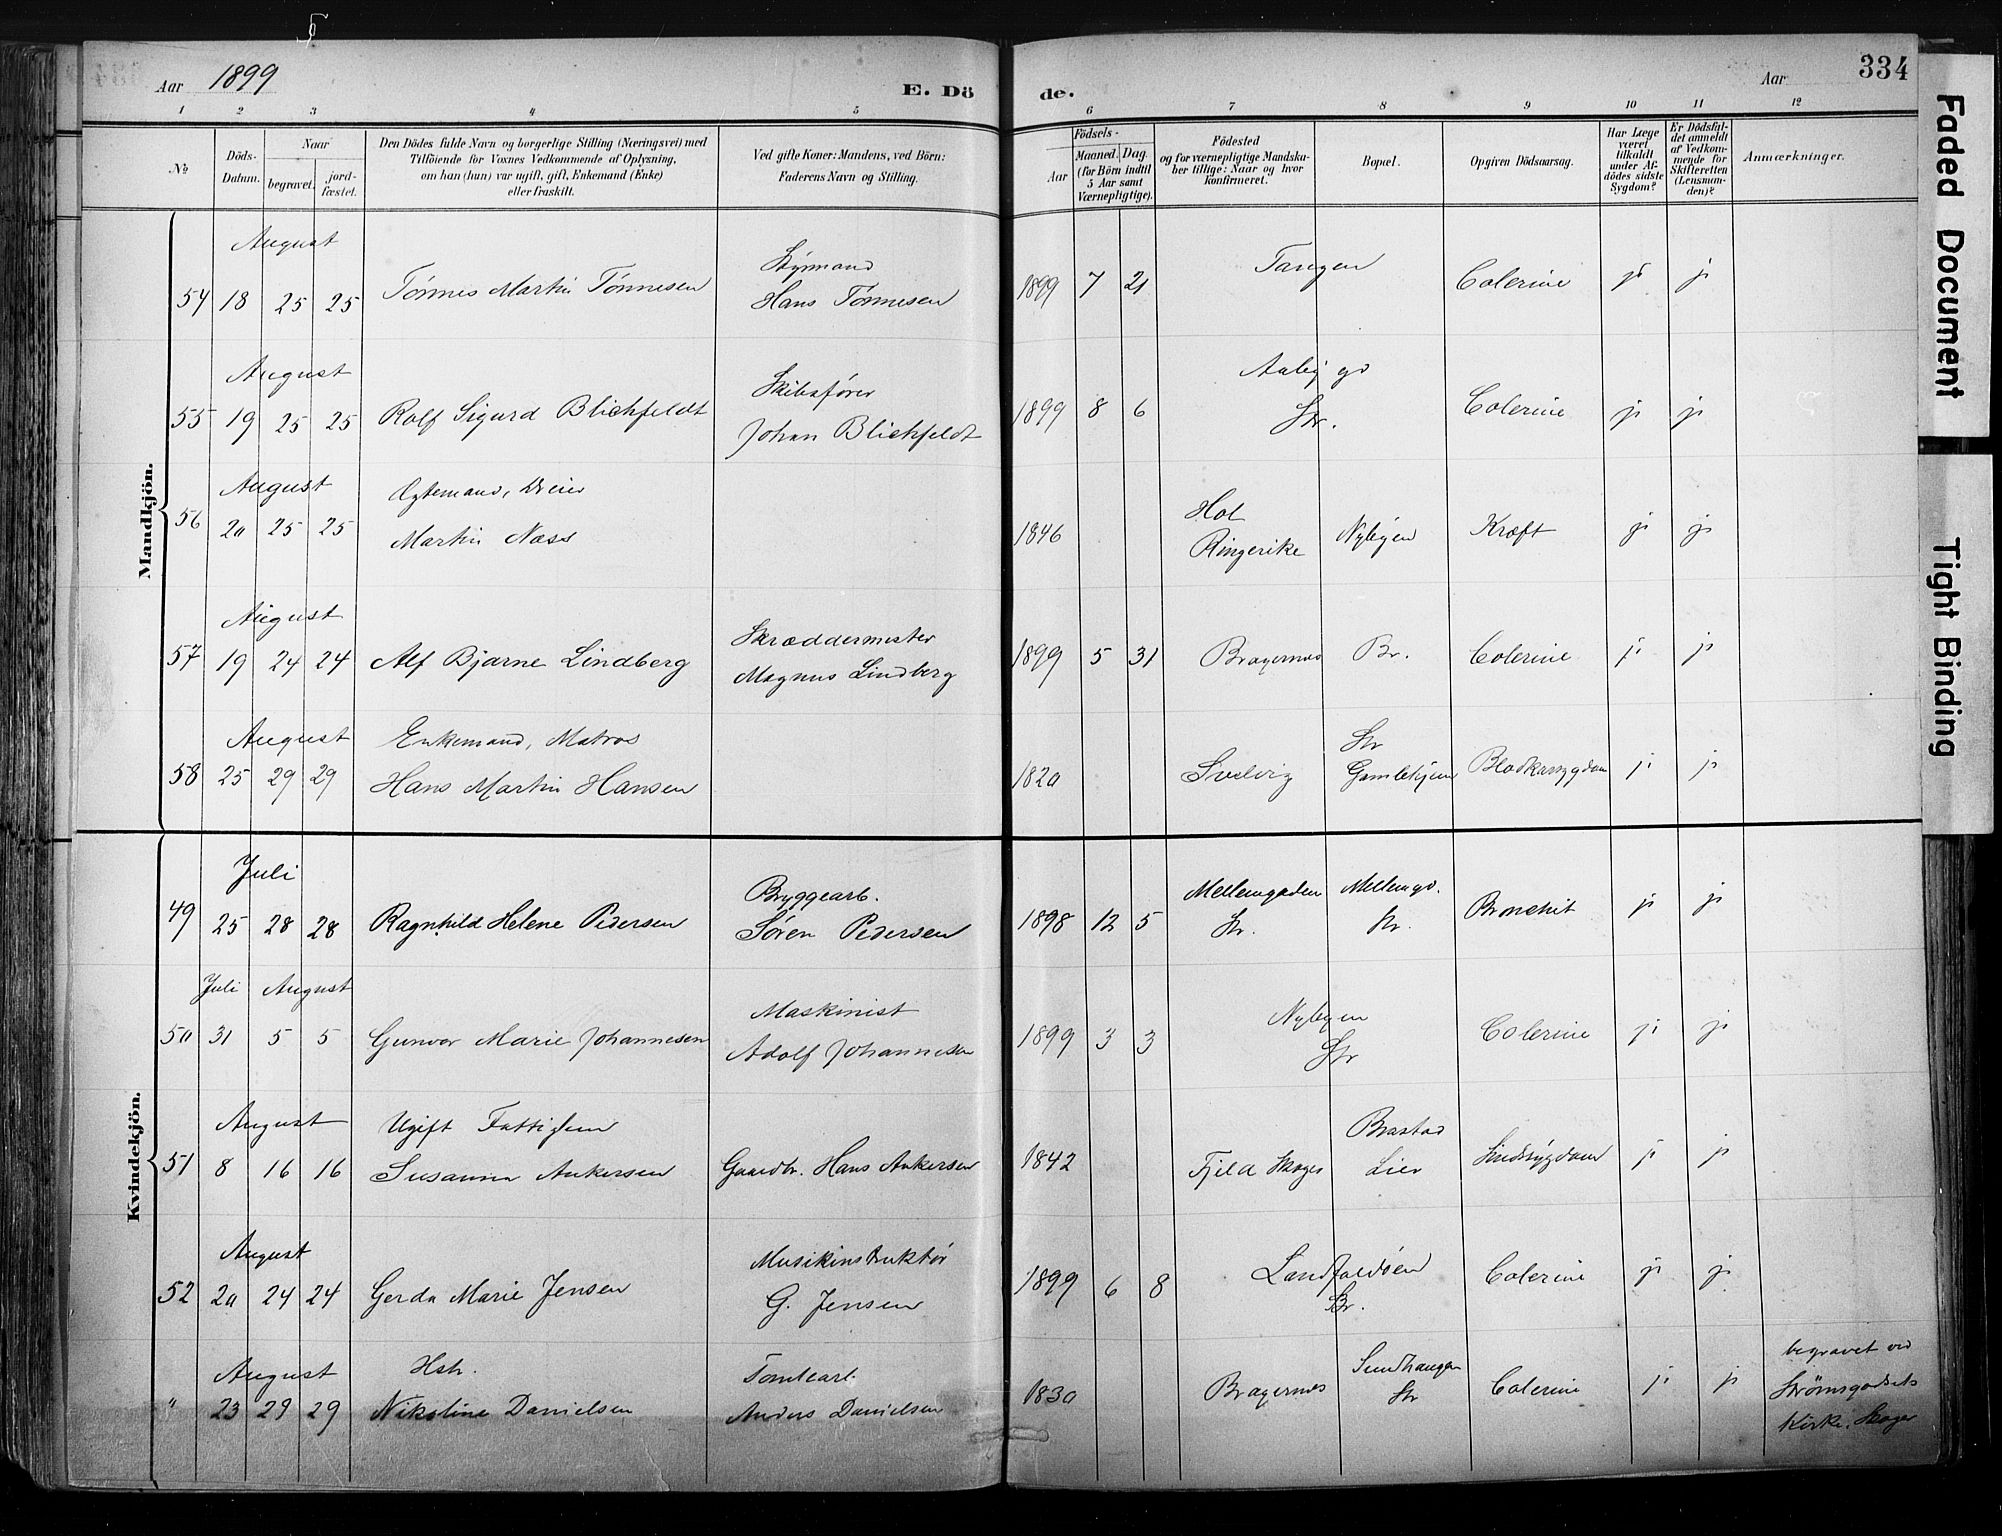 Aar 1899
E. Dö
de.
Aar
334
1 2 3 4 5 6 7 8 9 10 11 12
No
Döds-Datum.
Naar
begravet.
jord-fæstet.
Den Dödes fulde Navn og borgerlige Stilling (Næringsvei) med
Tilföiende for Voxnes Vedkommende af Oplysning,
om han (hun) var ugift, gift, Enkemand (Enke)
eller fraskilt.
Ved gifte Koner: Mandens, ved Börn:
Faderens Navn og Stilling.
Födsels-
Aar
Maaned. Dag.
(for Börn indtil
5 Aar samt
Værnepligtige).
Födested
og for værnepligtige Mandska-
ber tillige: Naar og hvor
konfirmeret.
Bopæl.
Opgiven Dödsaarsag.
Har Læge
været
tilkaldt
under Af-
dödes sidste
Sygdom?
Er Dödsfal-
det anmeldt
af Vedkom-
mende for
Skifteretten
(Lensman-
den)?
Anmærkninger.
Mandkjön.
August
Styrmand
54 18 25 25 Tönnes Martin Tönnesen Hans Tönnesen 1899 7 21 Tangen Colerine ja ja
August
Skibsfører
Aaby gd
55 19 25 25 Rolf Sigurd Blichfeldt Johan Blichfeldt 1899 8 6 Str. Colerine ja ja
August Egtemand, Dreier
Hol
56 20 25 25 Martin Næss 1846 Ringerike Nybyen Kræft ja ja
August
Skræddermester
57 19 24 24 Alf Bjarne Lindberg Magnus Lindberg 1899 5 31 Bragernes Br. Colerine ja ja
August Enkemand, Matros
Str
58 25 29 29 Hans Martin Hansen 1820 Svelvig Gamlekjem Blodkarsygdom ja ja
Kvindekjön.
Juli
Bryggearb.
Mellemgaden Mellemgd.
49 25 28 28 Ragnhild Helene Pedersen Søren Pedersen 1898 12 5 Str. Str. Bronchit ja ja
Juli August
Maskinist
Nybyen
50 31 5 5 Gunvor Marie Johannesen Adolf Johannesen 1899 3 3 Str Colerine ja ja
August Ugift Fattiglem
Brastad
51 8 16 16 Susanna Ankersen Gaardbr. Hans Ankersen 1842 Fjeld Skoger Lier Sindssygdom ja ja
August
Musikinstruktør
Landfaldöen
52 20 24 24 Gerda Marie Jensen G. Jensen 1899 6 8 Br. Colerine ja ja
August Hstr.
Tomtearb.
Sundhaugen
begravet ved
" 23 29 29 Nikoline Danielsen Anders Danielsen 1830 Bragernes Str Colerine ja ja Strömsgodsets
Kirke, Skoger
Faded Document
Tight Binding